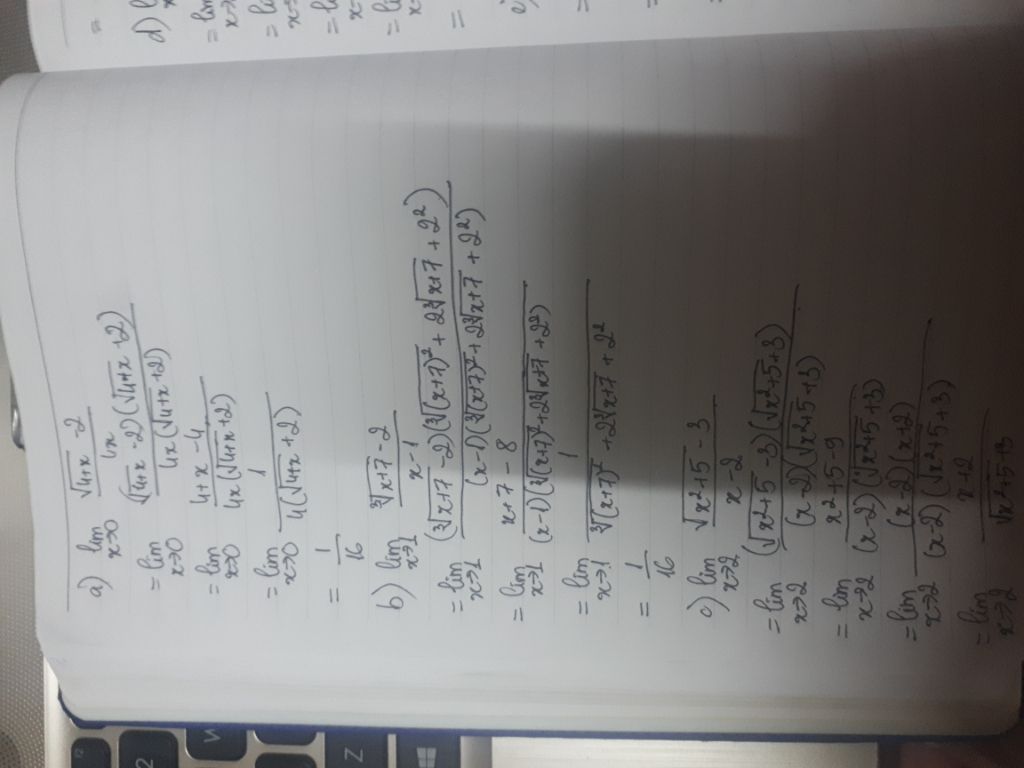 a) lim x→0 (√(4+x) - 2)/(4x)
= lim x→0 ((√(4+x) - 2)(√(4+x) + 2))/(4x(√(4+x) + 2))
= lim x→0 (4+x-4)/(4x(√(4+x) + 2))
= lim x→0 1/(4(√(4+x) + 2))
= 1/16
b) lim x→1 (∛(x+7) - 2)/(x-1)
= lim x→1 ((∛(x+7) - 2)(∛(x+7)² + 2∛(x+7) + 2²))/((x-1)(∛(x+7)² + 2∛(x+7) + 2²))
= lim x→1 (x+7-8)/((x-1)(∛(x+7)² + 2∛(x+7) + 2²))
= lim x→1 1/(∛(x+7)² + 2∛(x+7) + 2²)
= 1/16
c) lim x→2 (√(x²+5) - 3)/(x-2)
= lim x→2 ((√(x²+5) - 3)(√(x²+5) + 3))/((x-2)(√(x²+5) + 3))
= lim x→2 (x²+5-9)/((x-2)(√(x²+5) + 3))
= lim x→2 ((x-2)(x+2))/((x-2)(√(x²+5) + 3))
= lim x→2 (x+2)/(√(x²+5) + 3)
d) lim
= lim
= lim
Z
2